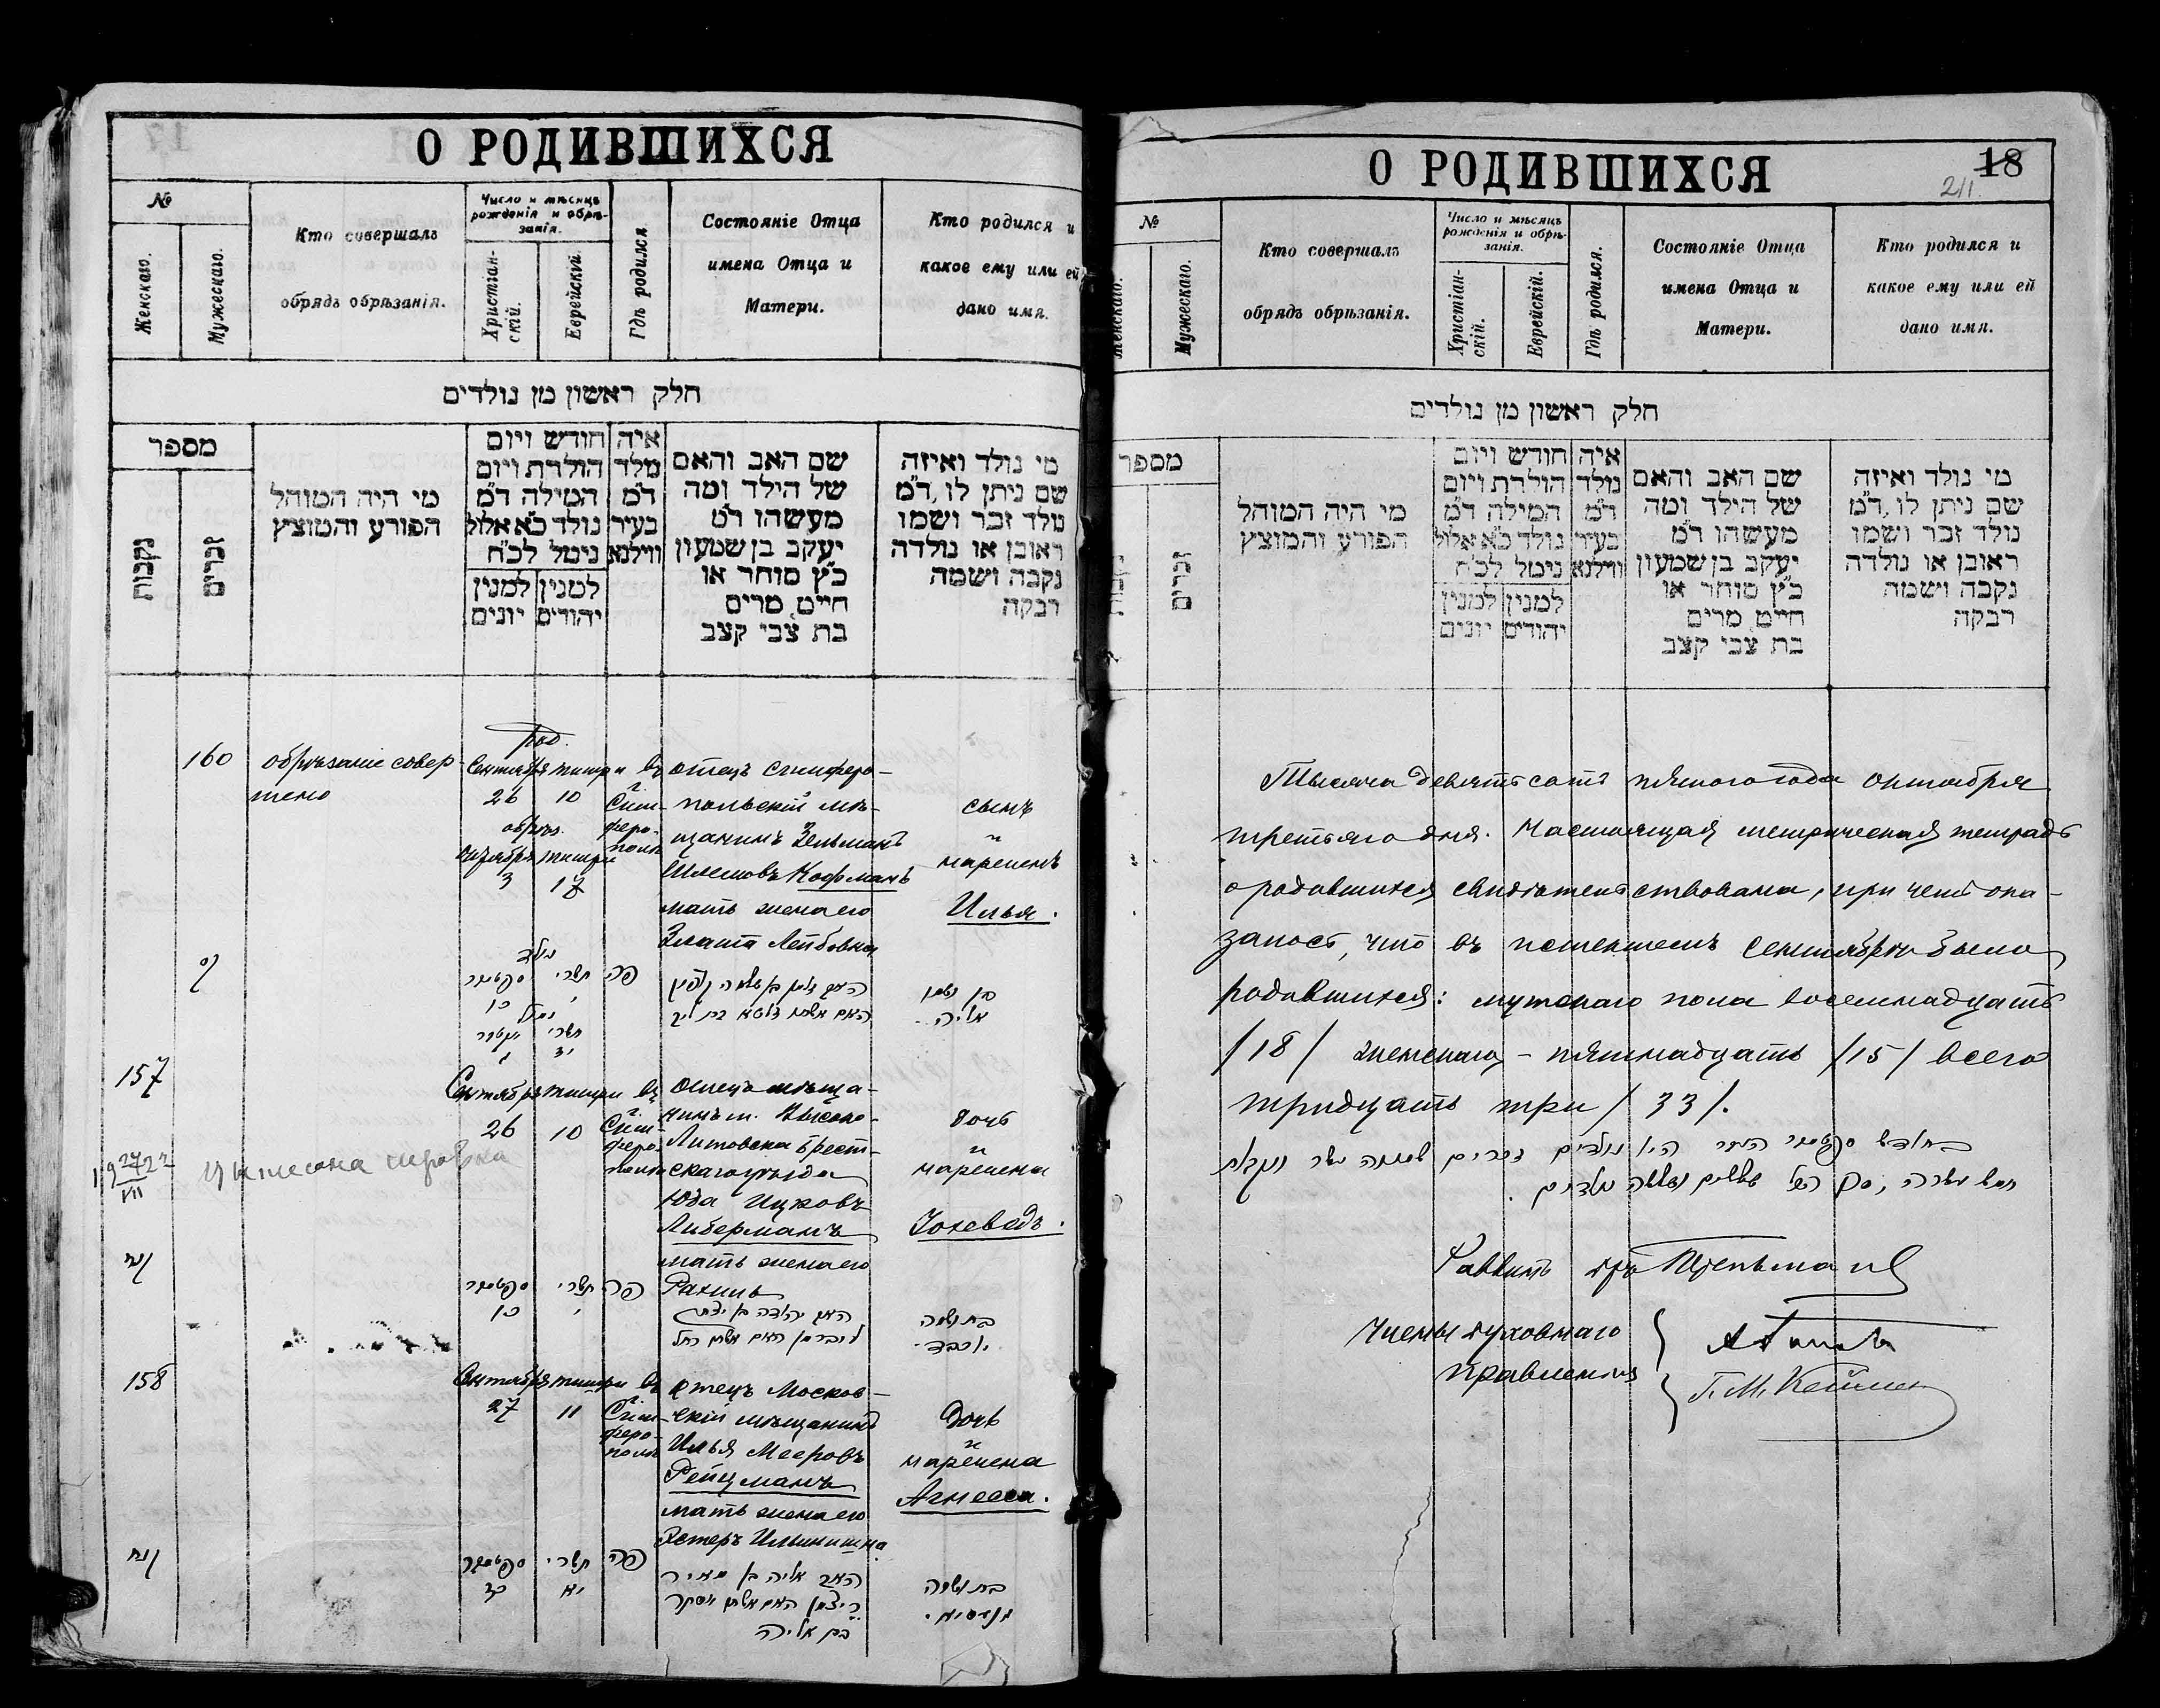 О РОДИВШИХСЯ
№
Женскаго.
Мужескаго.
Кто совершалъ
обрядъ обрѣзанія.
Число и мѣсяцъ
рожденія и обрѣ-
занія.
Христіан-
скій.
Еврейскій.
Гдѣ родился.
Состояніе Отца
имена Отца и
Матери.
Кто родился и
какое ему или ей
дано имя.
חלק ראשון מן נולדים
מספר
נקבות
זכרים
מי היה המוהל
הפורע והמוצץ
חודש ויום
הולדת ויום
המילה ד״מ
נולד כ״א אלול
נימל לכ״ח
למנין
יהודים
למנין
יונים
איה
נולד
ד״מ
בעיר
ווילנא
שם האב והאם
של הילד ומה
מעשהו ד״מ
יעקב בן שמעון
כ״ץ סוחר או
חייט מרים
בת צבי קצב
מי נולד ואיזה
שם ניתן לו, ד״מ
נולד זכר ושמו
ראובן או נולדה
נקבה ושמה
רבקה
160
обрѣзаніе совер-
шено
род.
Сентября
26
тишри
10
обрѣз.
октября
3
тишри
17
въ
г.
Сим-
феро-
полѣ
отецъ симферо-
польскій мѣ-
щанинъ Зельманъ
Шлемовъ Кофманъ
мать жена его
Злата Лейбовна
сынъ
и
нареченъ
Илья.
נולד
ספטמבר
תשרי
כו
י
פה
תשרי
יז
ג
בן ושמו
אליה
157
Сентября
26
тишри
10
въ
г.
Сим-
феро-
полѣ
отецъ мѣща-
нинъ м. Высоко-
Литовска Брест-
скаго уѣзда
Юда Ицковъ
Либерманъ
мать жена его
Рахиль
дочь
и
наречена
Іохеведъ.
ספטמבר
כו
תשרי
י
פה
האב יהודה בן יצחק
ליברמן האם אשתו רחל
בת ושמה
יוכבד
158
Сентября
27
тишри
11
въ
г.
Сим-
феро-
полѣ
отецъ Москов-
скій мѣщанинъ
Илья Мееровъ
Рейцманъ
мать жена его
Эстеръ Ильинишна
дочь
и
наречена
Агнесса.
ספטמבר
כז
תשרי
יא
פה
האב אליה בן מאיר
רייצמן האם אשתו אסתר
בת אליה
בת ושמה
אגנסיא.
О РОДИВШИХСЯ
18
211.
№
Женскаго.
Мужескаго.
Кто совершалъ
обрядъ обрѣзанія.
Число и мѣсяцъ
рожденія и обрѣ-
занія.
Христіан-
скій.
Еврейскій.
Гдѣ родился.
Состояніе Отца
имена Отца и
Матери.
Кто родился и
какое ему или ей
дано имя.
חלק ראשון מן נולדים
מספר
זכרים
מי היה המוהל
הפורע והמוצץ
חודש ויום
הולדת ויום
המילה ד״מ
נולד כ״א אלול
נימל לכ״ח
למנין
יהודים
למנין
יונים
איה
נולד
ד״מ
בעיר
ווילנא
שם האב והאם
של הילד ומה
מעשהו ד״מ
יעקב בן שמעון
כ״ץ סוחר או
חייט מרים
בת צבי קצב
מי נולד ואיזה
שם ניתן לו, ד״מ
נולד זכר ושמו
ראובן או נולדה
נקבה ושמה
רבקה
Тысяча девятьсотъ пятаго года октября
третьяго дня. Настоящая метрическая тетрадь
о родившихся свидѣтельствована, при чемъ ока-
залось, что въ истекшемъ сентябрѣ было
родившихся: мужскаго пола восемнадцать
/18/ женскаго - пятнадцать /15/ всего
тридцать три /33/.
בחודש ספטמבר העבר היו נולדים זכרים שמונה עשר ונקבות
חמש עשרה, סך הכל שלשים ושלשה נולדים.
Раввинъ
Члены духовнаго
правленія